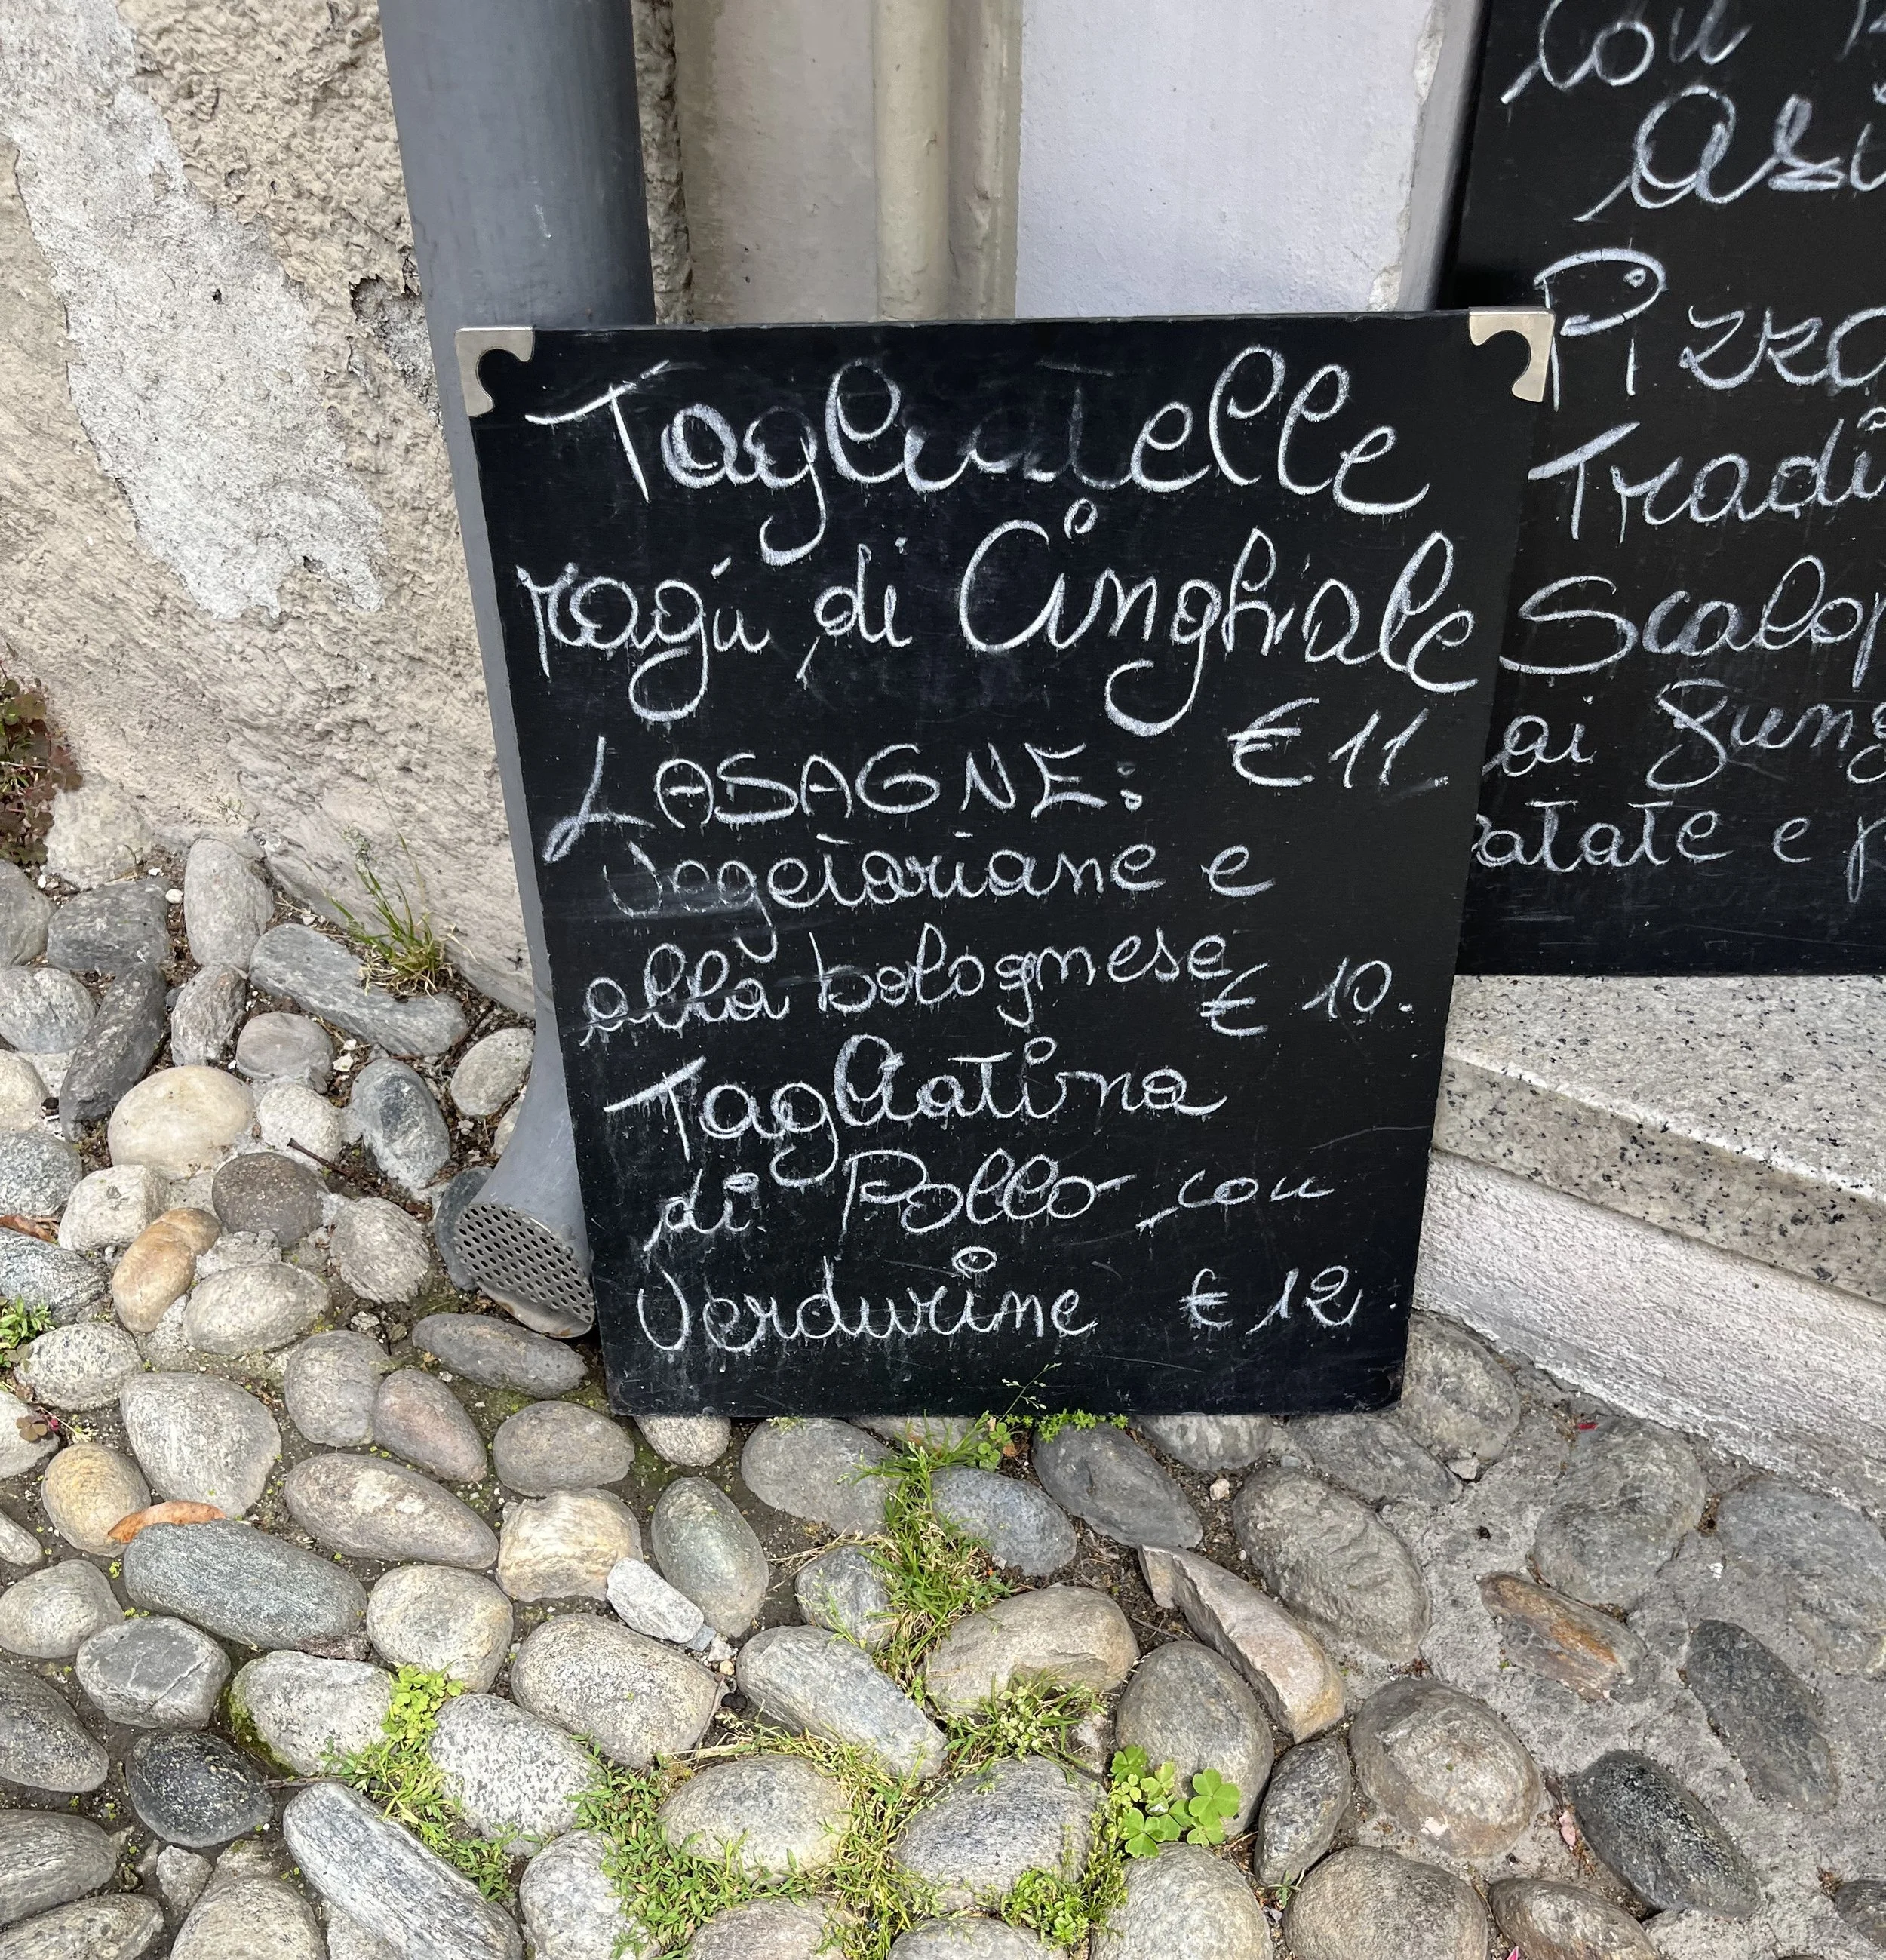 Tagliatelle
ragù di Cinghiale
€ 11.
LASAGNE:
Vegetariane e
alla bolognese
€ 10.
Tagliatina
di Pollo con
Verdurine € 12.
Con
Pizza
Tradi
Scalop
ai fung
patate e p